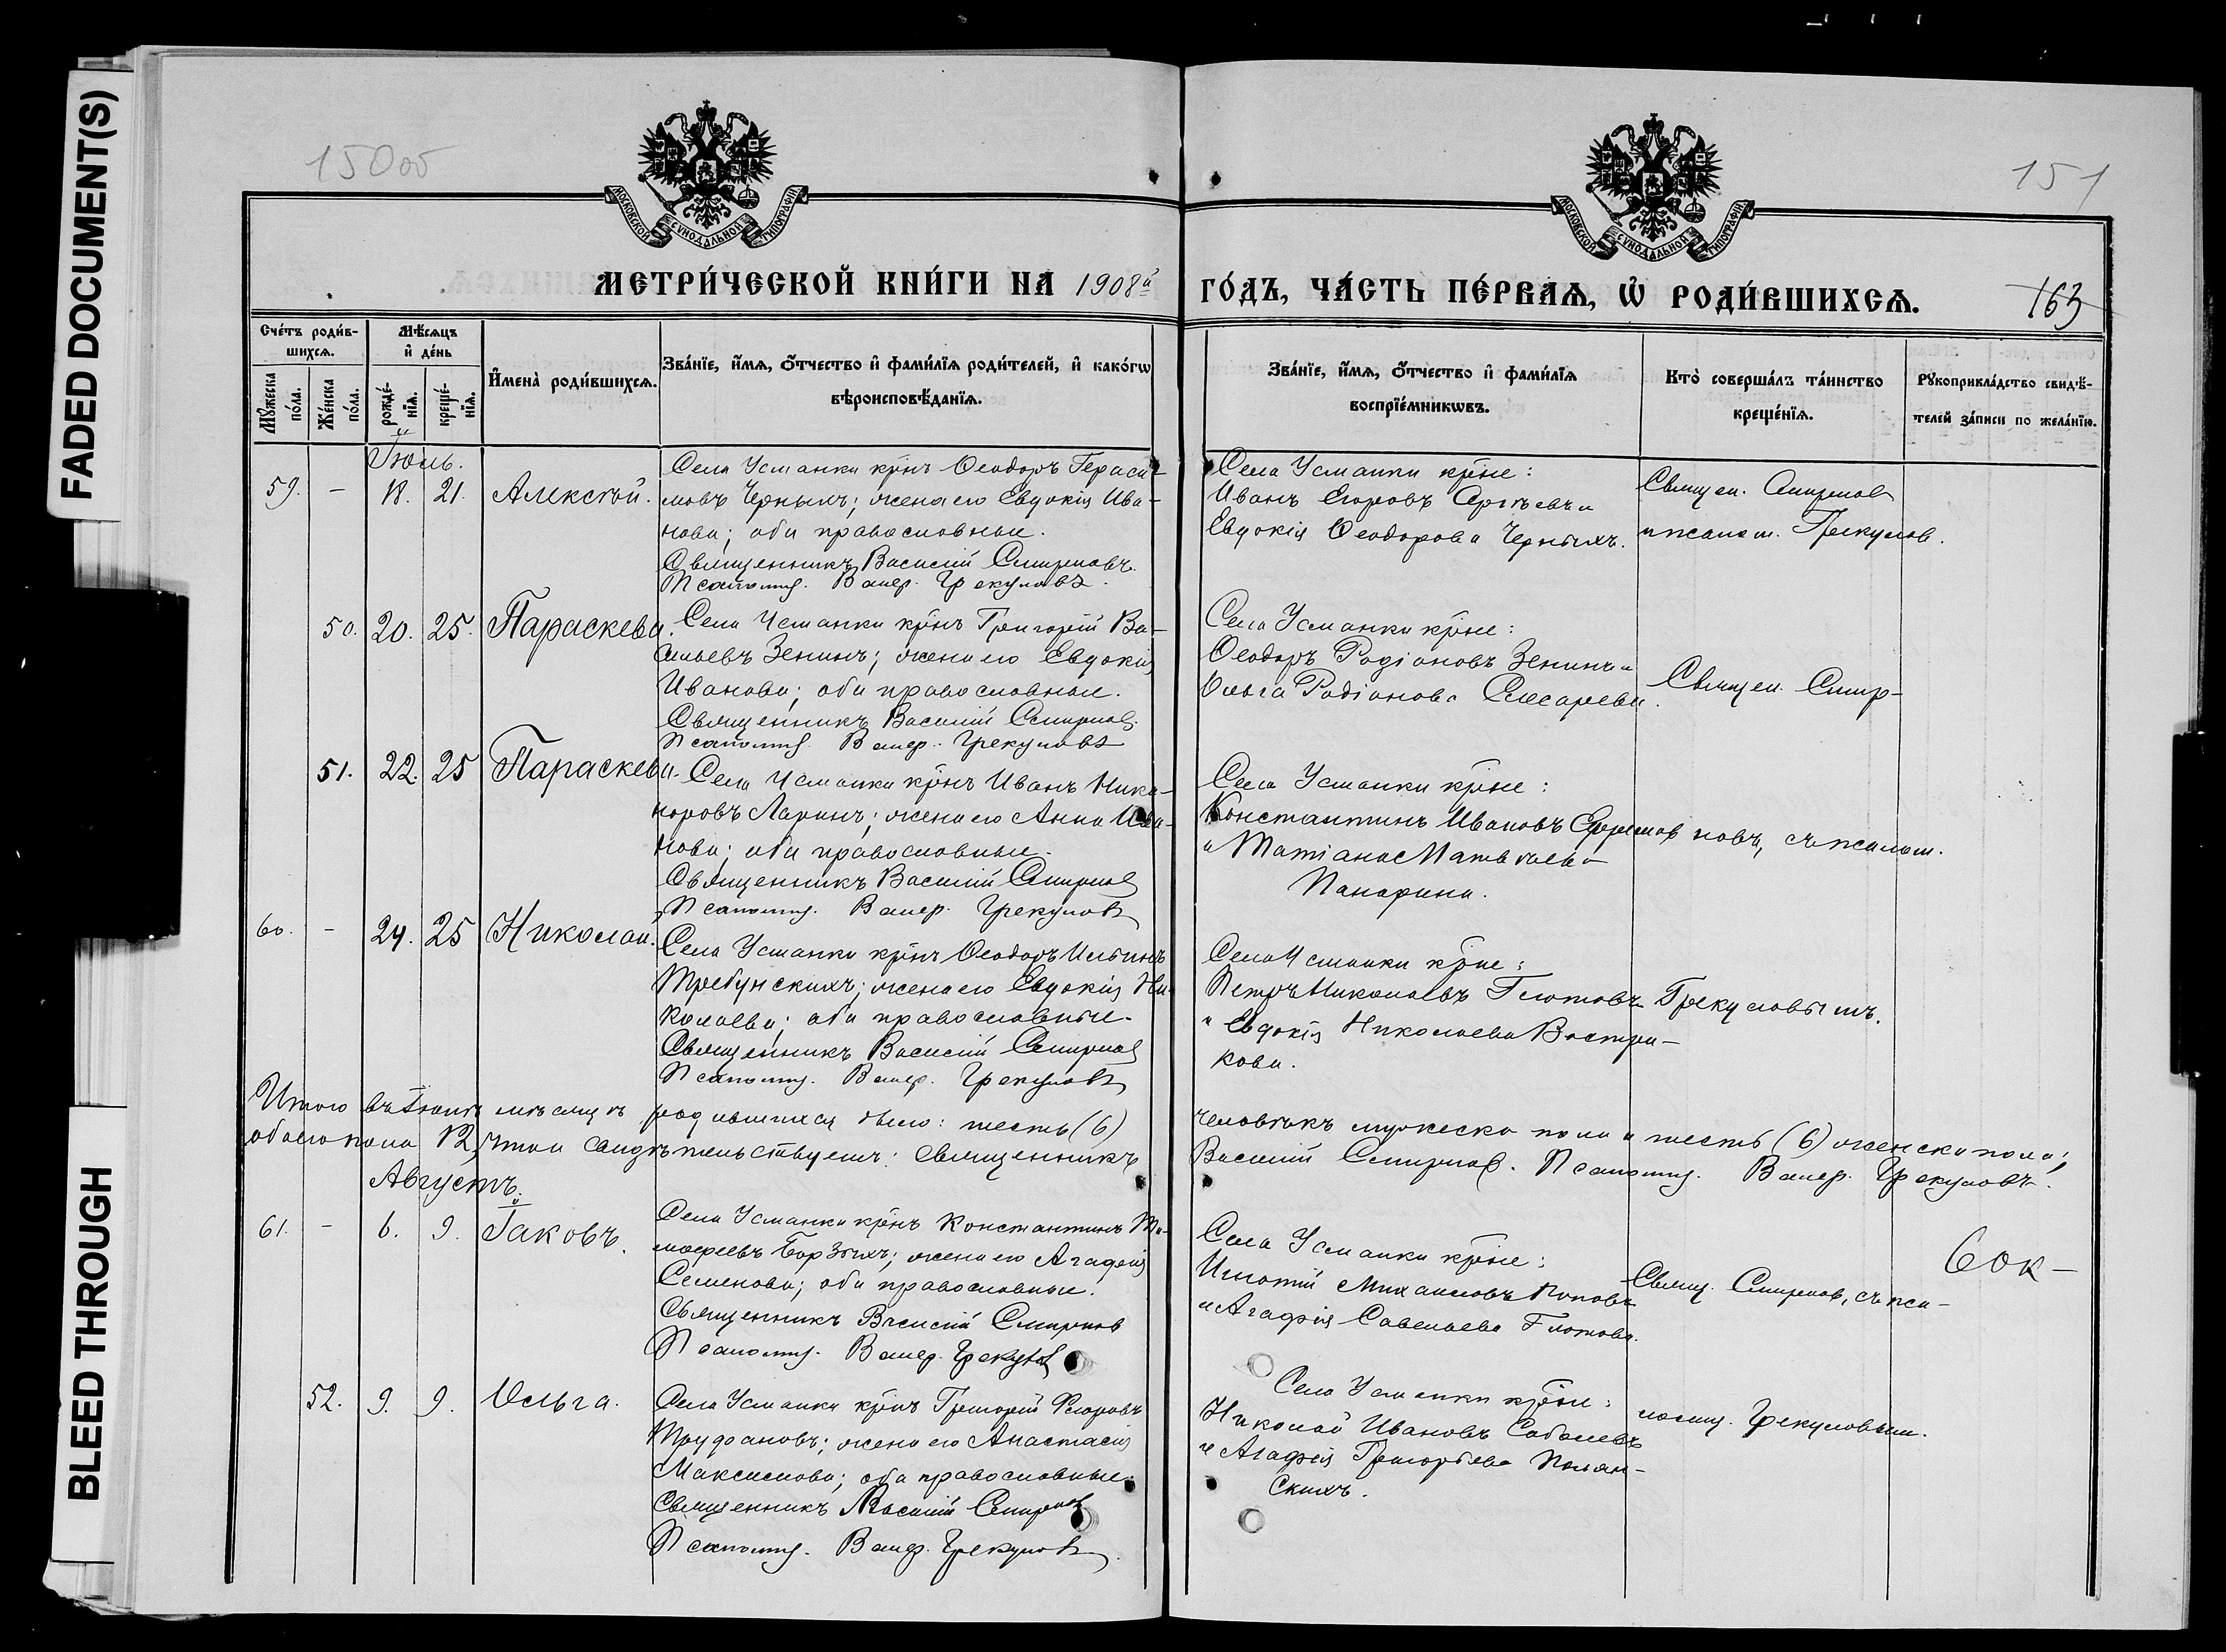 FADED DOCUMENT(S)
BLEED THROUGH
150об
151
163
МОСКОВСКОЙ СѴНОДАЛЬНОЙ ТИПОГРАФІИ
МОСКОВСКОЙ СѴНОДАЛЬНОЙ ТИПОГРАФІИ
МЕТРИ́ЧЕСКОЙ КНИ́ГИ НА 1908й
ГО́ДЪ, ЧА́СТЬ ПЕ́РВАѦ, Ѡ҆ РОДИ́ВШИХСѦ.
Сче́тъ роди́в-
шихсѧ.
Мꙋ́жеска по́ла.
Же́нска по́ла.
Мѣ́сѧцъ
и҆ де́нь
рожде́-
нїѧ.
креще́-
нїѧ.
И҆мена̀ роди́вшихсѧ.
Зва́нїе, и҆́мѧ, ѻ҆́тчество и҆ фами́лїѧ роди́телей, и҆ како́гѡ
вѣроисповѣ́данїѧ.
Зва́нїе, и҆́мѧ, ѻ҆́тчество и҆ фами́лїѧ
воспрїе́мникѡвъ.
Кто̀ соверша́лъ та́инство
креще́нїѧ.
Рꙋкоприкла́дство свидѣ́-
телей за́писи по жела́нїю.
Іюль.
59. - 18. 21. Алексѣй.
Села Усманки крнъ Ѳеодоръ Гераси-
мовъ Черныхъ; жена его Евдокія Ива-
нова; оба православные.
Священникъ Василій Смирновъ.
Псаломщ. Валер. Грекуловъ.
Села Усманки крне:
Иванъ Егоровъ Сергѣевъ и
Евдокія Ѳеодорова Черныхъ.
Священ. Смирнов
и псалом. Грекулов.
50. 20. 25. Параскева.
Села Усманки крнъ Григорій Ва-
сильевъ Зенинъ; жена его Евдокія
Иванова; оба православные.
Священникъ Василій Смирнов.
Псаломщ. Валер. Грекуловъ
Села Усманки крне:
Ѳеодоръ Родіоновъ Зенинъ и
Ольга Родіонова Слесарева.
Священ. Смир-
51. 22. 25 Параскева.
Села Усманки крнъ Иванъ Ника-
норовъ Ларинъ; жена его Анна Ива-
нова; оба православные.
Священникъ Василій Смирнов
Псаломщ. Валер. Грекуловъ
Села Усманки крне:
Константинъ Ивановъ Ефремов
и Татіана Матвѣева
Панарина.
новъ, съ псалом.
60. - 24. 25 Николай.
Села Усманки крнъ Ѳеодоръ Ильинъ
Требунскихъ; жена его Евдокія Ни-
колаева; оба православные.
Священникъ Василій Смирнов
Псаломщ. Валер. Грекуловъ
Села Усманки крне:
Петръ Николаевъ Глотовъ
и Евдокія Николаева Востри-
кова.
Грекуловымъ.
Итого въ Іюлѣ мѣсяцѣ родившихся было: шесть (6) человѣкъ мужеска пола и шесть (6) женска пола;
обоего пола 12, въ чемъ свидѣтельствуемъ: Священникъ Василій Смирнов. Псаломщ. Валер. Грекуловъ.
Августъ.
61. - 6. 9. Іаковъ.
Села Усманки крнъ Константинъ Ти-
моѳеевъ Борзыхъ; жена его Агафія
Семенова; оба православные.
Священникъ Василій Смирнов
Псаломщ. Валер. Грекулов
Села Усманки крне:
Игнатій Михаиловъ Поповъ
и Агафія Савельева Глотова.
Свящ. Смирнов, съ пса-
60к-
52. 9. 9. Ольга.
Села Усманки крнъ Григорій Флоровъ
Труфановъ; жена его Анастасія
Максимова; оба православные.
Священникъ Василій Смирнов
Псаломщ. Валер. Грекулов
Села Усманки крне:
Николай Ивановъ Соболевъ
и Агафія Григорьева Полян-
скихъ.
ломщ. Грекуловым.